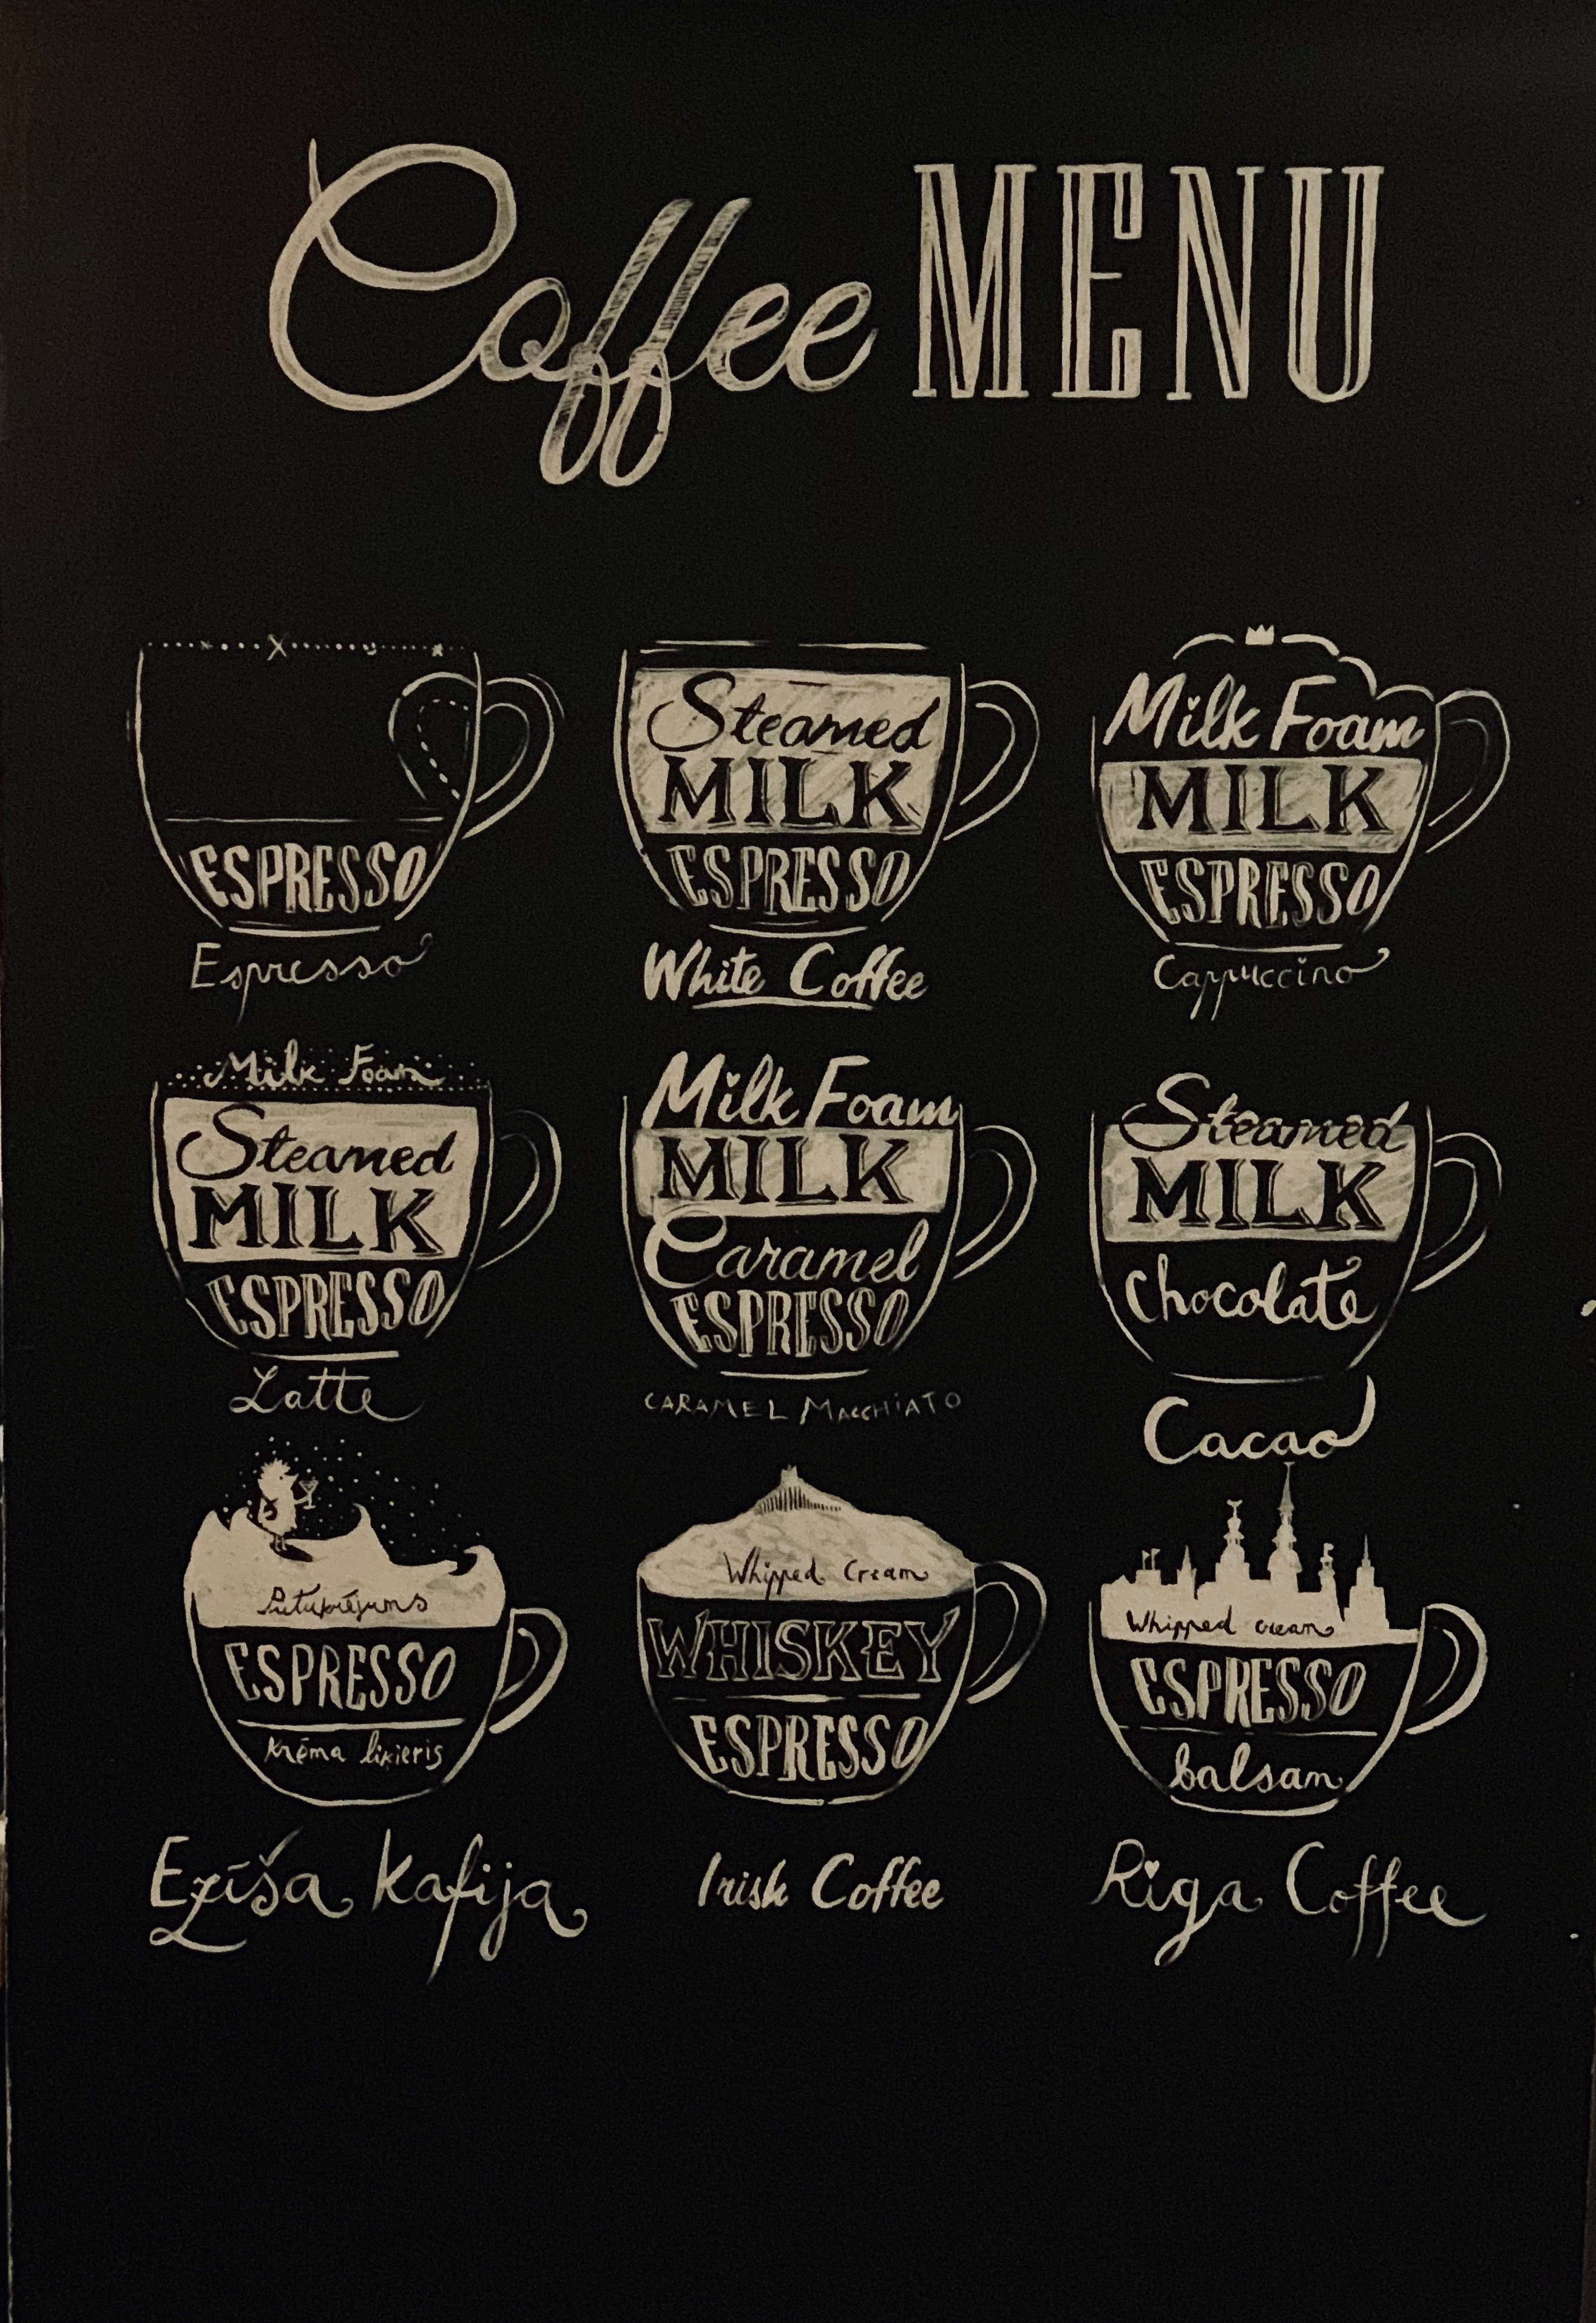 Coffee MENU
ESPRESSO
Espresso
Steamed
MILK
ESPRESSO
White Coffee
Milk Foam
MILK
ESPRESSO
Cappuccino
Milk Foam
Steamed
MILK
ESPRESSO
Latte
Milk Foam
MILK
Caramel
ESPRESSO
CARAMEL MACCHiATO
Steamed
MILK
Chocolate
Cacao
Putukrējums
ESPRESSO
Krēma liķieris
Ezīša kafija
Whipped Cream
WHISKEY
ESPRESSO
Irish Coffee
Whipped cream
ESPRESSO
balsam
Riga Coffee